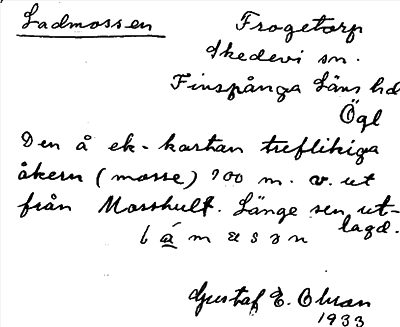 Ladmossen
Frogetorp
Skedevi sn.
Finspånga Läns hd
Ögl
Den å ek-kartan treflikiga
åkern (mosse) 700 m. v. ut
från Mosshult. Länge sen ut-
lagd.
Gustaf E. Olson
1933